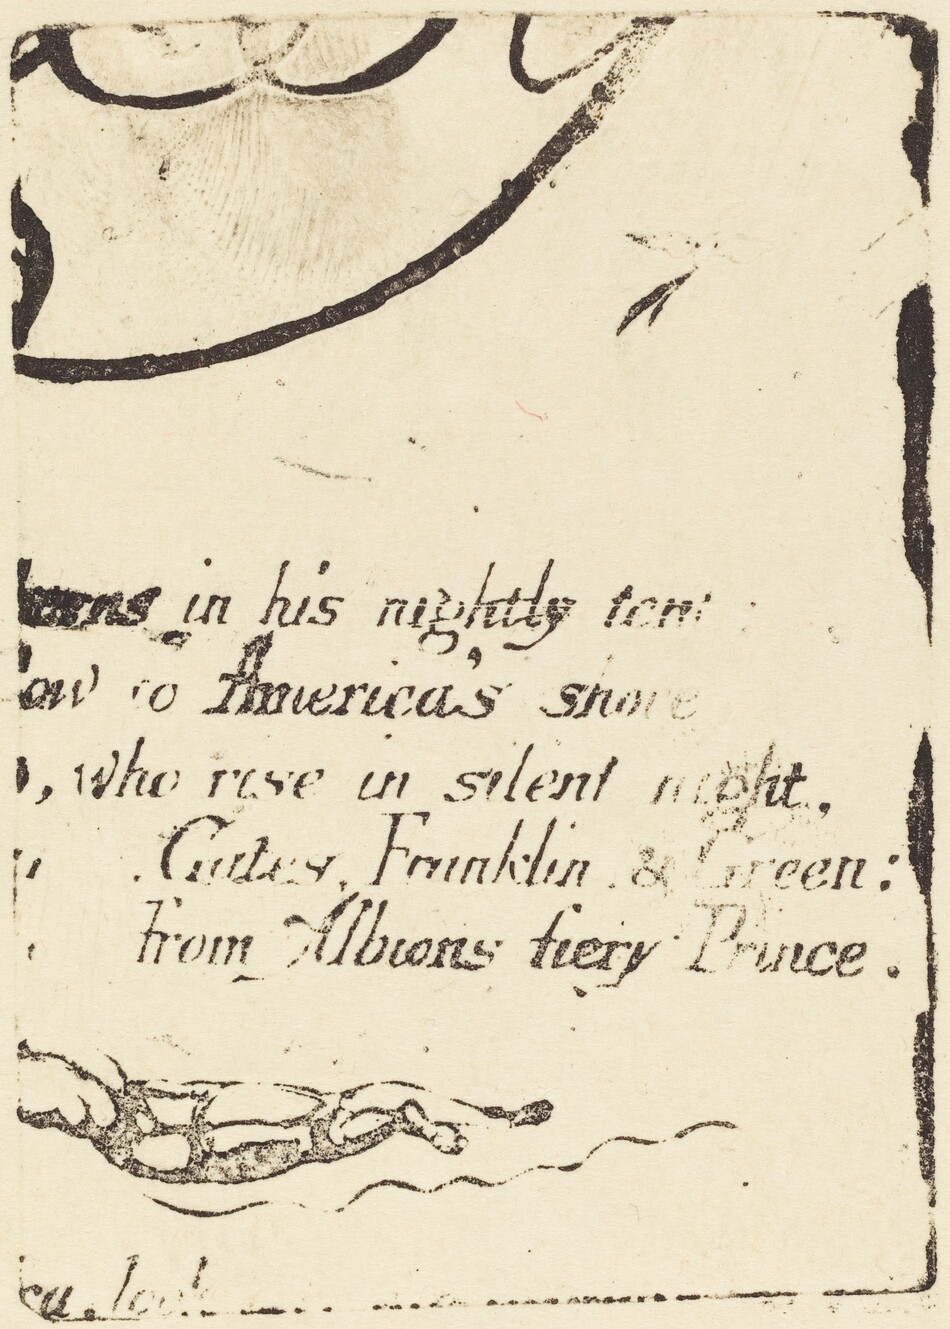 in his nightly ten
to America's shore
, who rise in silent night,
Gates, Franklin & Green:
From Albions fiery Prince.